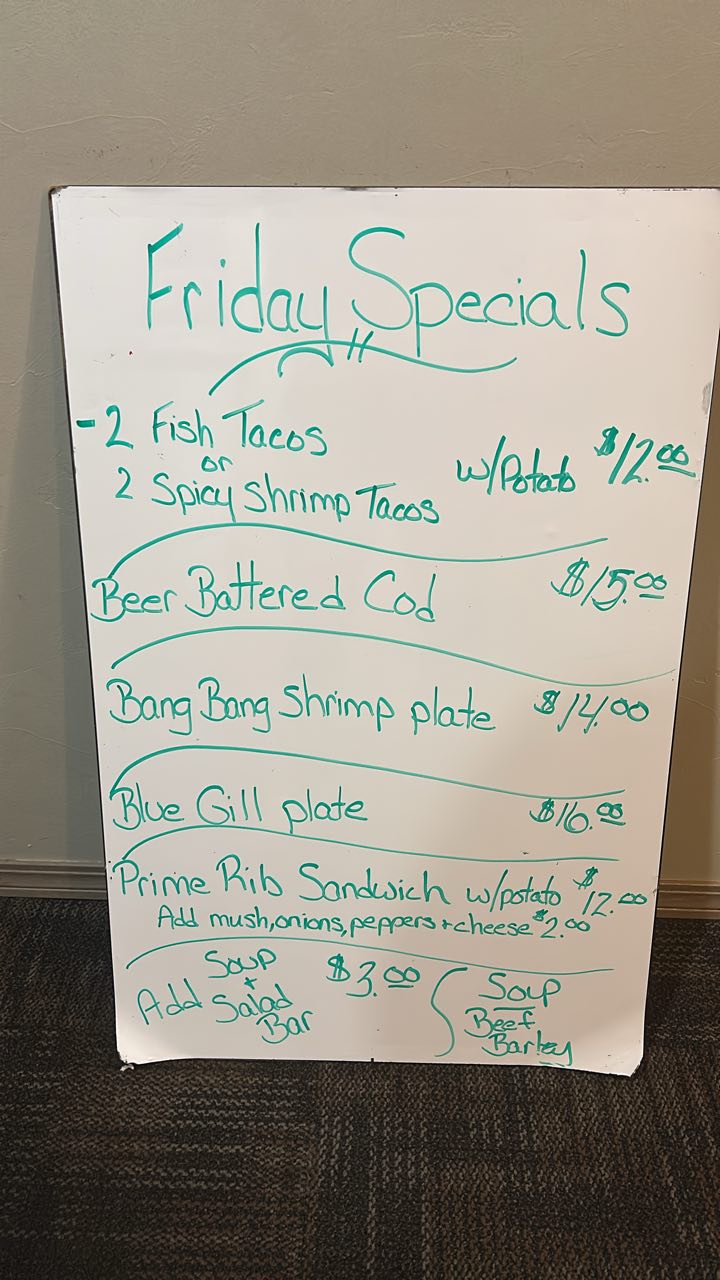 Friday Specials
- 2 Fish Tacos
or
2 Spicy Shrimp Tacos w/Potato $12.00
Beer Battered Cod $15.00
Bang Bang Shrimp plate $14.00
Blue Gill plate $16.00
Prime Rib Sandwich w/potato $12.00
Add mush, onions, peppers + cheese $2.00
Add Soup + Salad Bar $3.00
Soup
Beef
Barley